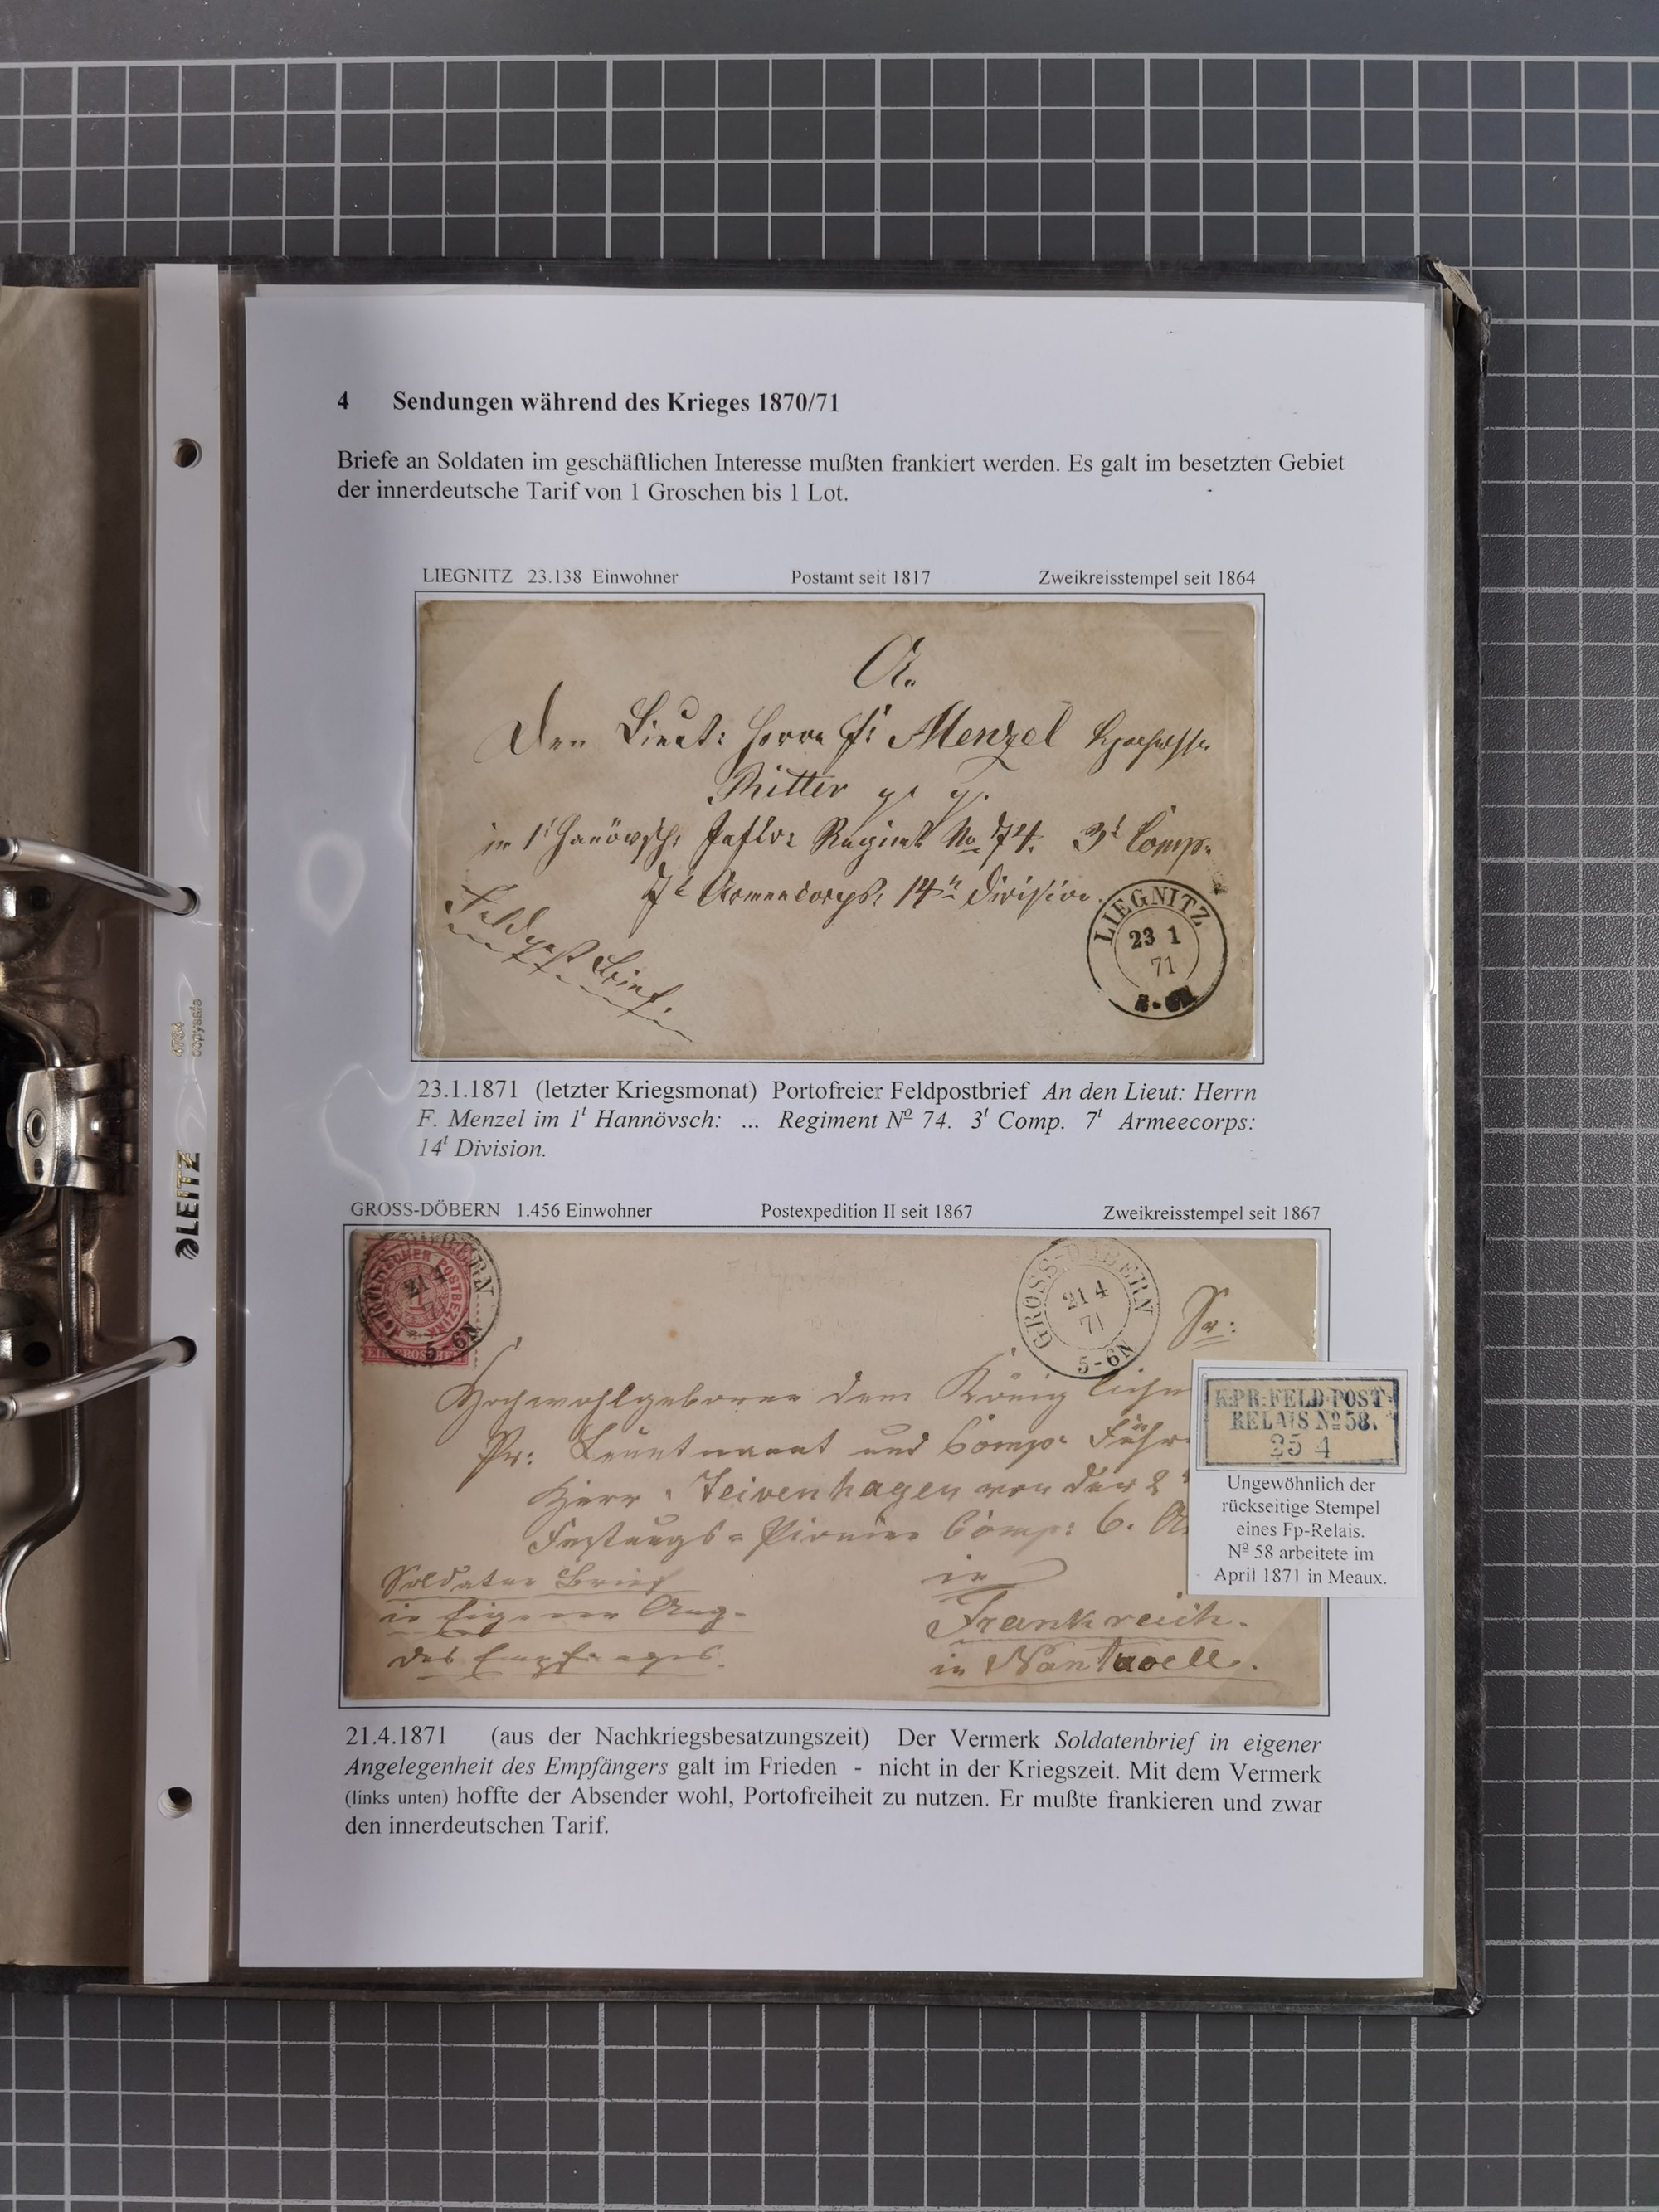 4 Sendungen während des Krieges 1870/71
Briefe an Soldaten im geschäftlichen Interesse mußten frankiert werden. Es galt im besetzten Gebiet
der innerdeutsche Tarif von 1 Groschen bis 1 Lot.
LIEGNITZ 23.138 Einwohner Postamt seit 1817 Zweikreisstempel seit 1864
Den Lieut: Herrn F: Menzel
Ritter
in 1t Hanövsch: Regimt No 74. 3t Comp.
7t Armeecorps: 14n Division.
Feldpost Brief.
LIEGNITZ
23 1
71
23.1.1871 (letzter Kriegsmonat) Portofreier Feldpostbrief An den Lieut: Herrn
F. Menzel im 1t Hannövsch: ... Regiment Nº 74. 3t Comp. 7t Armeecorps:
14t Division.
GROSS-DÖBERN 1.456 Einwohner Postexpedition II seit 1867 Zweikreisstempel seit 1867
NORDDEUTSCHER POSTBEZIRK
1
EIN GROSCHEN
21 4
5-6N
GROSS-DÖBERN
21 4
71
5-6N
Sr:
Hochwohlgeboren dem König lichen
Pr: Leuntnant und Comp: Führ
Herr Zeivenhagen von der 2
Festungs=Pionier Comp: 6. A.
in
Frankreich.
in
Soldaten Brief
in Eigenen Ang-
des Empfängers.
K:PR:FELD-POST-
RELAIS Nº 58.
25 4
Ungewöhnlich der
rückseitige Stempel
eines Fp-Relais.
Nº 58 arbeitete im
April 1871 in Meaux.
21.4.1871 (aus der Nachkriegsbesatzungszeit) Der Vermerk Soldatenbrief in eigener
Angelegenheit des Empfängers galt im Frieden - nicht in der Kriegszeit. Mit dem Vermerk
(links unten) hoffte der Absender wohl, Portofreiheit zu nutzen. Er mußte frankieren und zwar
den innerdeutschen Tarif.
LEITZ
4734
copysafe